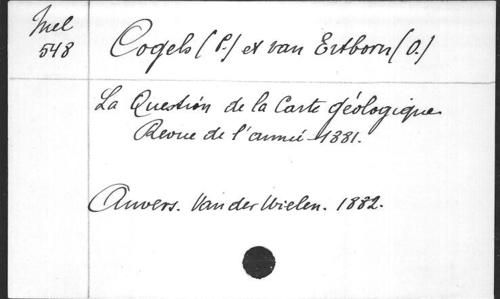 Mel
548
Cogels (P.) et van Ertborn (O.)
La Question de la Carte géologique
Revue de l'année 1881.
Anvers. Van der Wielen. 1882.